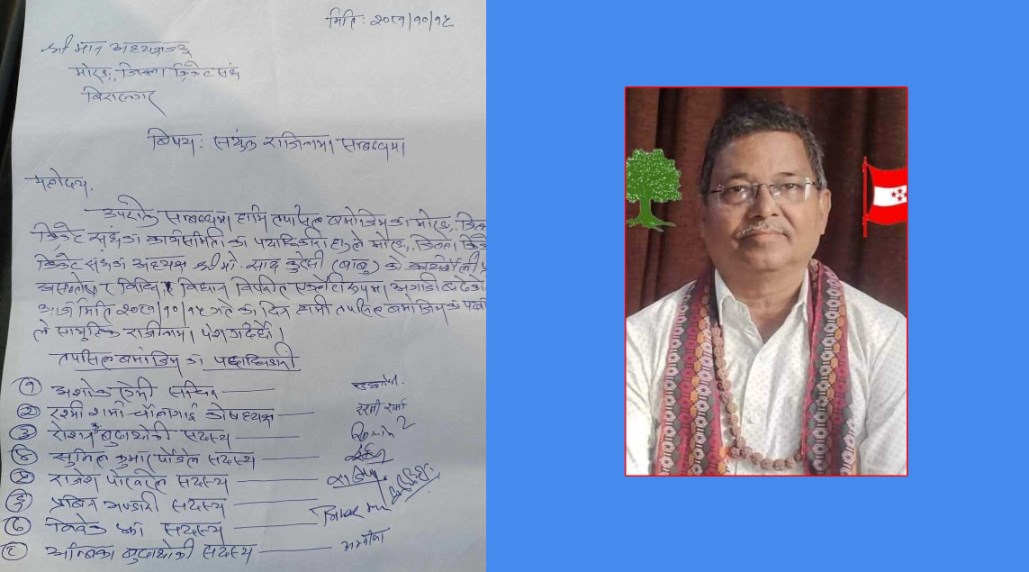 मिति: २०८१/१०/१५
श्री मान अध्यक्षज्यू
मोरङ जिल्ला क्रिकेट संघ
बिराटनगर
बिषय: संयुक्त राजिनामा सम्बन्धमा
महोदय,
उपरोक्त सम्बन्धमा हामि तपसिल बमोजिमका मोरङ
क्रिकेट संघका कार्यसमिती का पदाधिकारी हरुले मोरङ जिल्ला
क्रिकेट संघका अध्यक्ष श्री मो. साद कुरेसी (बाबु) को कार्यशैली
असन्तोष र विधि र विधान विपरित एकलौटी रुपमा अगाडी
आज मिति २०८१/१०/१५ गते का दिन हामी तपसिल बमोजिमका
ले सामुहिक राजीनामा पेश गर्दछौं।
तपसिल बमोजिम का पदाधिकारी
१ अशोक सचिव
२ रश्मी शर्मा चौलागाई कोषध्यक्ष रश्मी शर्मा
३ रोशन बुढाथोकी सदस्य
४ सुनिल कुमार पौडेल सदस्य
५ राजेश पोखरेल सदस्य
६ प्रबिन भण्डारी सदस्य
७ विवेक सदस्य
८ अम्बिका बुढाथोकी सदस्य